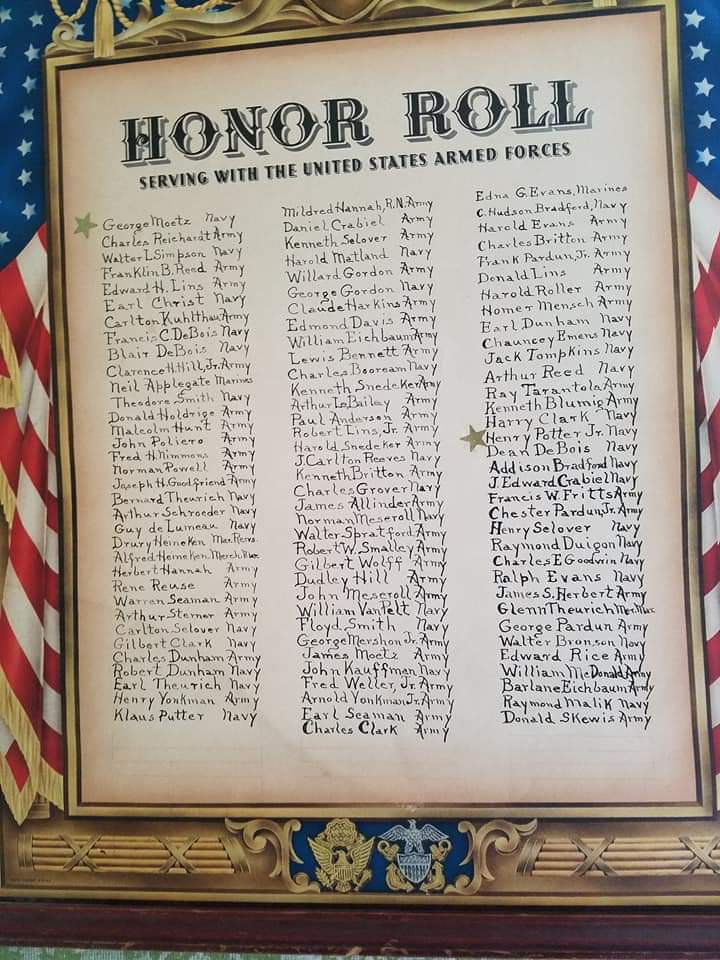 HONOR ROLL
SERVING WITH THE UNITED STATES ARMED FORCES
George Moetz Navy
Charles Reichardt Army
Walter L Simpson Navy
Franklin B. Reed Army
Edward H. Lins Army
Earl Christ Navy
Carlton Kuhlthau Army
Francis C. DeBois Navy
Blair DeBois Navy
Clarence H. Hill, Jr. Army
Neil Applegate Marines
Theodore Smith Navy
Donald Holdrige Army
Malcolm Hunt Army
John Poliero Army
Fred H. Nimmons Army
Norman Powell Army
Joseph H. Goodfriend Army
Bernard Theurich Navy
Arthur Schroeder Navy
Guy de Lumeau Navy
Drury Heineken Mar. Reers.
Alfred Heineken, Merch. Mar.
Herbert Hannah Army
Rene Reuse Army
Warren Seaman Army
Arthur Sterner Army
Carlton Selover Navy
Gilbert Clark Navy
Charles Dunham Army
Robert Dunham Navy
Earl Theurich Navy
Henry Yonkman Army
Klaus Putter Navy
Mildred Hannah, R.N. Army
Daniel Crabiel Army
Kenneth Selover Army
Harold Matland Navy
Willard Gordon Army
George Gordon Navy
Claude Harkins Army
Edmond Davis Army
William Eichbaum Army
Lewis Bennett Army
Charles Booream Navy
Kenneth Snedeker Army
Arthur L. Bailey Army
Paul Anderson Army
Robert Lins, Jr. Army
Harold Snedeker Army
J. Carlton Reeves Navy
Kenneth Britton Army
Charles Grover Navy
James Allinder Army
Norman Meseroll Navy
Walter Spratford Army
Robert W. Smalley Army
Gilbert Wolff Army
Dudley Hill Army
John Meseroll Army
William Van Pelt Navy
Floyd Smith Navy
George Mershon Jr. Army
James Moetz Army
John Kauffman Navy
Fred Weller, Jr. Army
Arnold Yonkman Jr. Army
Earl Seaman Army
Charles Clark Army
Edna G. Evans, Marines
C. Hudson Bradford, Navy
Harold Evans Army
Charles Britton Army
Frank Pardun, Jr. Army
Donald Lins Army
Harold Roller Army
Homer Mensch Army
Earl Dunham Navy
Chauncey Emens Navy
Jack Tompkins Navy
Arthur Reed Navy
Ray Tarantola Army
Kenneth Blumig Army
Harry Clark Navy
Henry Potter Jr. Navy
Dean DeBois Navy
Addison Bradford Navy
J. Edward Crabiel Navy
Francis W. Fritts Army
Chester Pardun, Jr. Army
Henry Selover Navy
Raymond Duigon Navy
Charles E Goodwin Navy
Ralph Evans Navy
James S. Herbert Army
Glenn Theurich Mer. Mar.
George Pardun Army
Walter Bronson Navy
Edward Rice Army
William McDonald Army
Barlane Eichbaum Army
Raymond Malik Navy
Donald Skewis Army